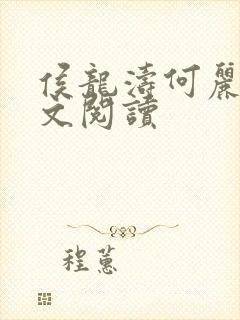 侯龍濤何麗
文閱讀
程蕙